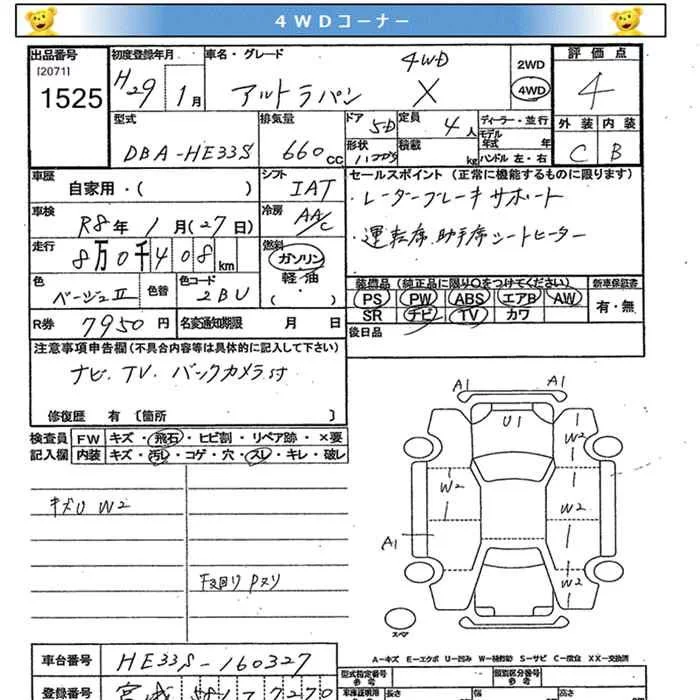 4WDコーナー
出品番号
[2071]
1525
初度登録年月
H29 1月
車名・グレード
4WD
アルトラパン X
2WD
4WD
評価点
4
外装 内装
C B
型式
DBA-HE33S
排気量
660cc
ドア
5D
形状
定員
4人
積載 kg
ディーラー・並行
モデル
年式 年
ハンドル 左・右
車歴
自家用・( )
シフト
IAT
車検
R8年 1月(27日)
冷房
AA/C
走行
8万0千408km
燃料
ガソリン
軽・油
・( )
色
ベージュⅡ
色替
色コード
2BU
R券 7950円
名変通知期限 月 日
セールスポイント (正常に機能するものに限ります)
・レーダーブレーキサポート
・運転席、助手席シートヒーター
装備品 (純正品に限り○をつけてください)
PS PW ABS エアB AW
SR ナビ TV カワ
新車保証書
有・無
後日品
注意事項申告欄(不具合内容等は具体的に記入して下さい)
ナビ、TV、バックカメラ付
修復歴 有 〔箇所 〕
検査員
記入欄
FW キズ・飛石・ヒビ割・リペア跡・×要
内装 キズ・汚レ・コゲ・穴・スレ・キレ・破レ
キズU W2
下廻り Pヌリ
A1 A1
U1
W2
W2
W2
W2
A1
スペア
A-キズ E-エクボ U-凹み W-補修跡 S-サビ C-腐食 XX-交換済
車台番号
HE33S-160327
登録番号
宮城
型式指定番号
参考
類別区分番号
参考
長さ
幅
高さ